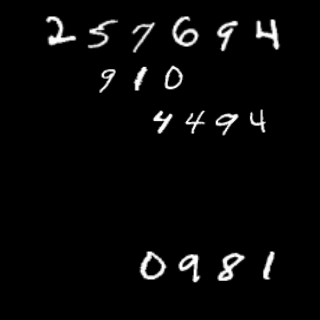 257694
910
4494
0981